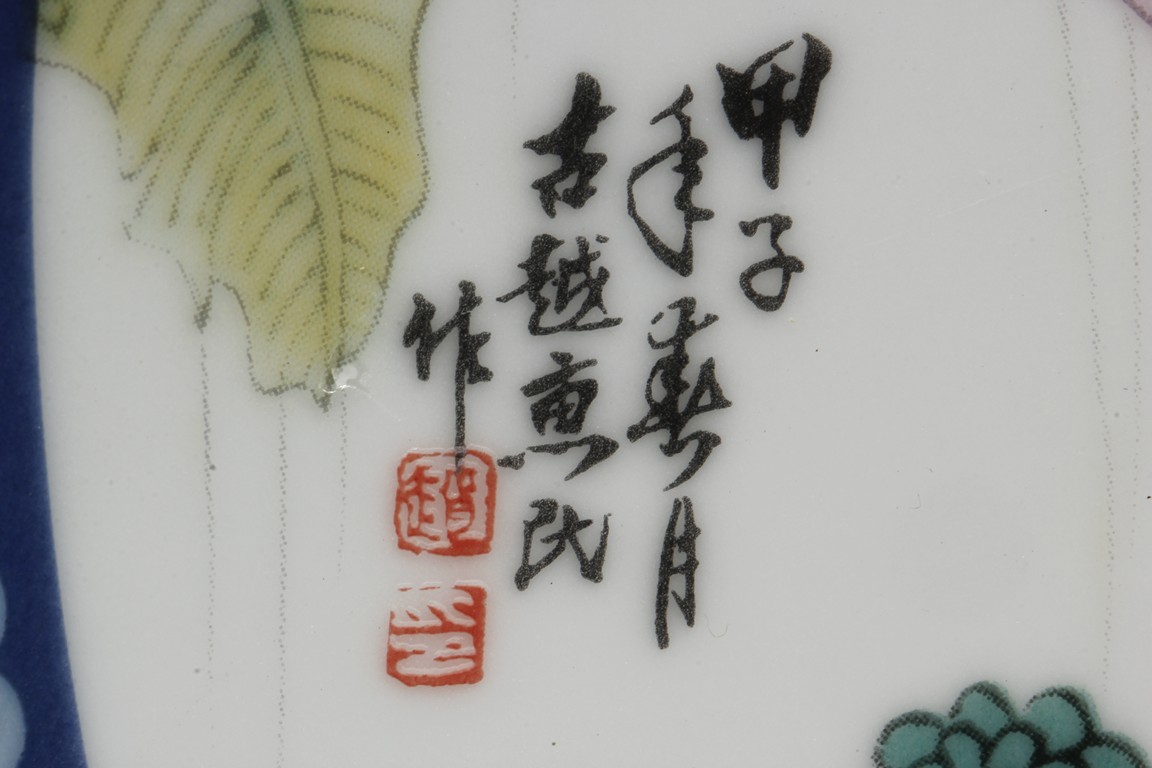 甲子
年春月
古越惠民
作
趙